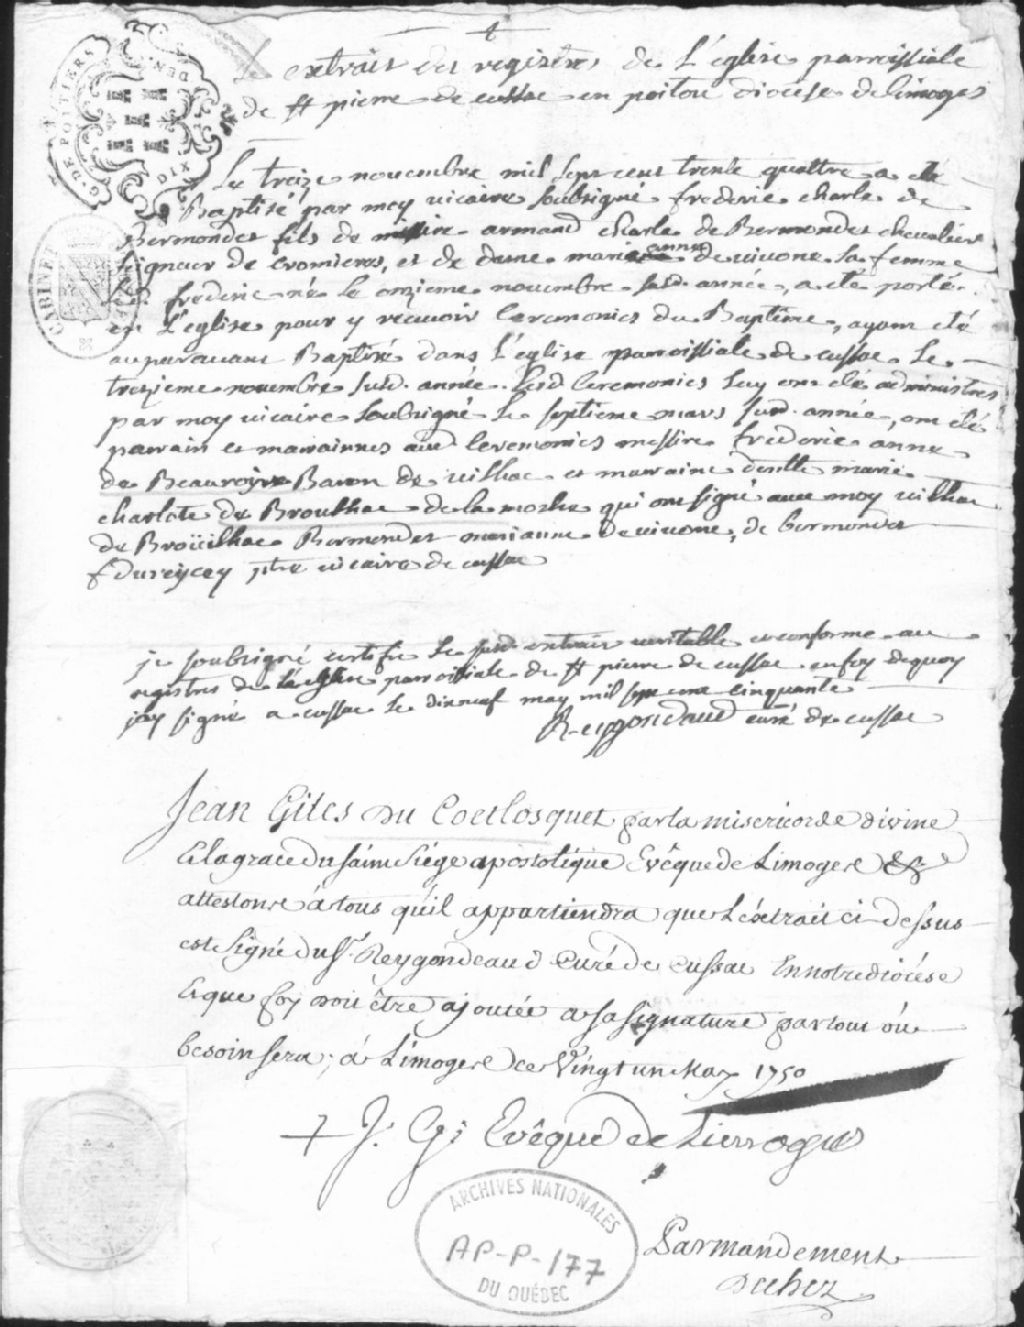 extrait des registres de L'eglise parroissiale
de st pierre de cussac en poitou diocese de limoges
G. DE POITIERS
SIX DEN.
CABINET
Le treize novembre mil sept cent trente quattre a eté
Baptisé par moy vicaire soubsigné frederic charle de
Bermondet fils de messire armand charle de Bermondet chevalier
seigneur de cromieres, et de dame marie anne de vivone sa femme
frederic né le onzieme novembre susd. année, a eté porté
en L'eglise pour y recevoir ceremonies du Baptême, ayant eté
auparavant Baptisé dans L'eglise parroissiale de cussac le
trezieme novembre susd. année. lesd ceremonies luy ont eté administrés
par moy vicaire soubsigné le septieme mars susd. année, ont eté
parrain et marainnes aud ceremonies messire frederic anne
de Beauroyre Baron de vilhac et marraine demlle marie
charlote de Brouilhac de la mothe qui ont signé avec moy vilhac
de Broüilhac Bermondet marianne de vivone, de bermondet
f dureycey ptre vicaire de cussac
je soubsigné certifie le susd. extrait veritable et conforme au
registres de l'eglise parroissiale de st pierre de cussac en foy de quoy
jay signé a cussac le dixneuf may mil sept cent cinquante
Reygondeaud curé de cussac
Jean Giles du Coetlosquet par la misericorde divine
& la grace du saint Siége apostolique Evêque de Limoges &c
attestons à tous qu'il appartiendra que L'éxtrait ci-dessus
est signé du Sr. Reygondeaud Curé de cussac en notre diocése
& que foy doit être ajoutée a sa signature partout où
besoin sera; à Limoges ce Vingt un May 1750
+ J. G; Evêque de Limoges
ARCHIVES NATIONALES
AP-P-177
DU QUÉBEC
Par mandement